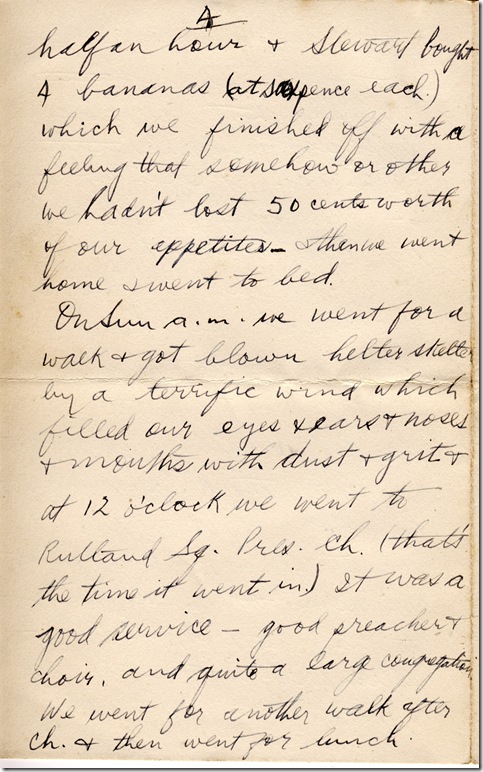 4
half an hour & Stewart bought
4 bananas (at sixpence each.)
which we finished off with a
feeling that somehow or other
we hadn't lost 50 cents worth
of our appetites – & then we went
home & went to bed.
On Sun a.m. we went for a
walk & got blown helter skelter
by a terrific wind which
filled our eyes & ears & noses
& mouths with dust & grit &
at 12 o'clock we went to
Rutland Sq. Pres. Ch. (that's
the time it went in.) It was a
good service – good preacher &
choir, and quite a large congregation.
We went for another walk after
Ch. & then went for lunch.